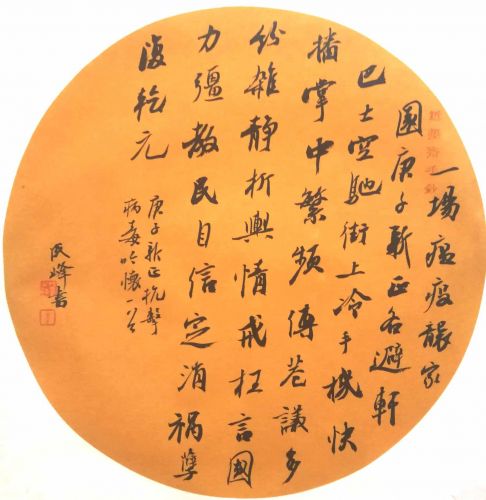 一場瘟疫襲家
國庚子新正各避軒
巴士空馳街上冷手機快
播掌中繁頻傳巷議多
紛雜靜析輿情戒枉言國
力彊教民自信定消禍孽
復乾元
庚子新正抗擊
病毒吟懷一首
峰書